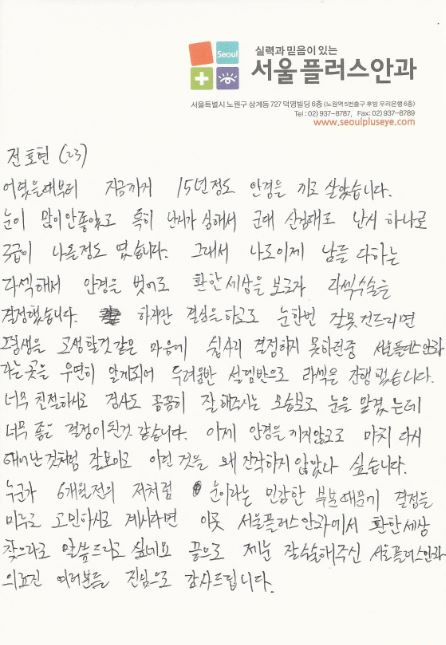 Seoul
실력과 믿음이 있는
서울플러스안과
서울특별시 노원구 상계동 727 덕영빌딩 6층 (노원역 5번출구 후방 우리은행 6층)
Tel : 02) 937-8787, Fax: 02) 937-8789
www.seoulpluseye.com
전호현 (23)
어렸을때부터 지금까지 15년정도 안경을 끼고 살았습니다.
눈이 많이안좋았고 특히 난시가 심해서 군대 신검때도 난시 하나로
3급이 나올정도 였습니다. 그래서 나도이제 남들 다하는
라섹해서 안경을 벗어보 환한세상을 보고자 라섹수술을
결정했습니다. 하지만 결심을하고도 눈한번 잘못건드리면
평생을 고생할것같은 마음에 쉽사리 결정하지 못하던중 서울플러스안과
라는곳을 우연히 알게되어 두려움반 설렘반으로 라섹을 진행했습니다.
너무 친절하시고 검사도 꼼꼼히 잘해주시는 모습보고 눈을 맡겼는데
너무 좋은 결정이된것 같습니다. 이제 안경을 끼지않고도 마치 다시
태어난것처럼 잘보이고 이런것을 왜 진작하지 않았나 싶습니다.
누군가 6개월전의 저처럼 눈이라는 민감한 부분때문에 결정을
미루고 고민하시고 계시다면 이곳 서울플러스안과에서 환한세상
찾으라고 말씀드리고 싶네요 끝으로 제눈 잘수술해주신 서울플러스안과
의료진 여러분들 진심으로 감사드립니다.